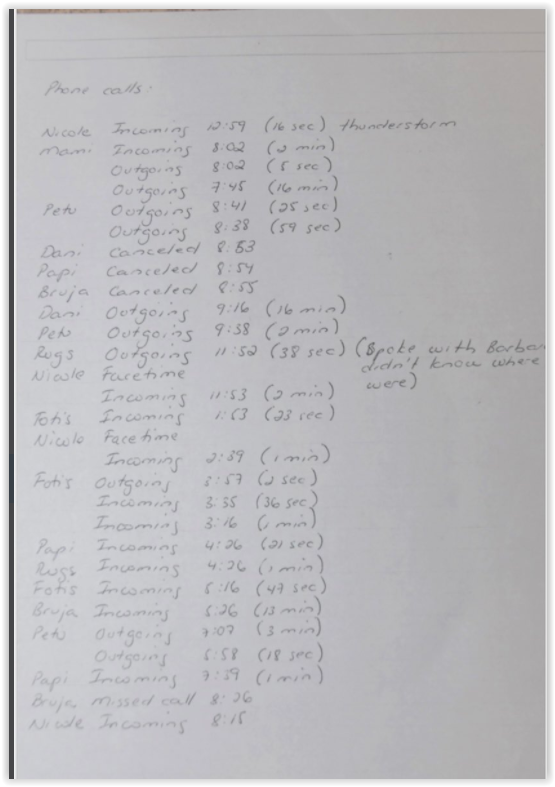 Phone calls:
Nicole Incoming 12:59 (16 sec) thunderstorm
Mami Incoming 8:02 (2 min)
Outgoing 8:02 (5 sec)
Outgoing 7:45 (16 min)
Petu Outgoing 8:41 (25 sec)
Outgoing 8:38 (59 sec)
Dani Canceled 8:53
Papi Canceled 8:54
Bruja Canceled 8:55
Dani Outgoing 9:16 (16 min)
Petu Outgoing 9:58 (2 min)
Rugs Outgoing 11:52 (38 sec) (Spoke with Barba
didn't know where
Nicole Facetime were)
Incoming 11:53 (2 min)
Fotis Incoming 1:53 (23 sec)
Nicole Facetime
Incoming 2:39 (1 min)
Fotis Outgoing 3:57 (2 sec)
Incoming 3:35 (36 sec)
Incoming 3:16 (1 min)
Papi Incoming 4:26 (21 sec)
Rugs Incoming 4:26 (1 min)
Fotis Incoming 5:16 (47 sec)
Bruja Incoming 5:26 (13 min)
Petu Outgoing 7:07 (3 min)
Outgoing 5:58 (18 sec)
Papi Incoming 7:39 (1 min)
Bruja Missed call 8:26
Nicole Incoming 8:15